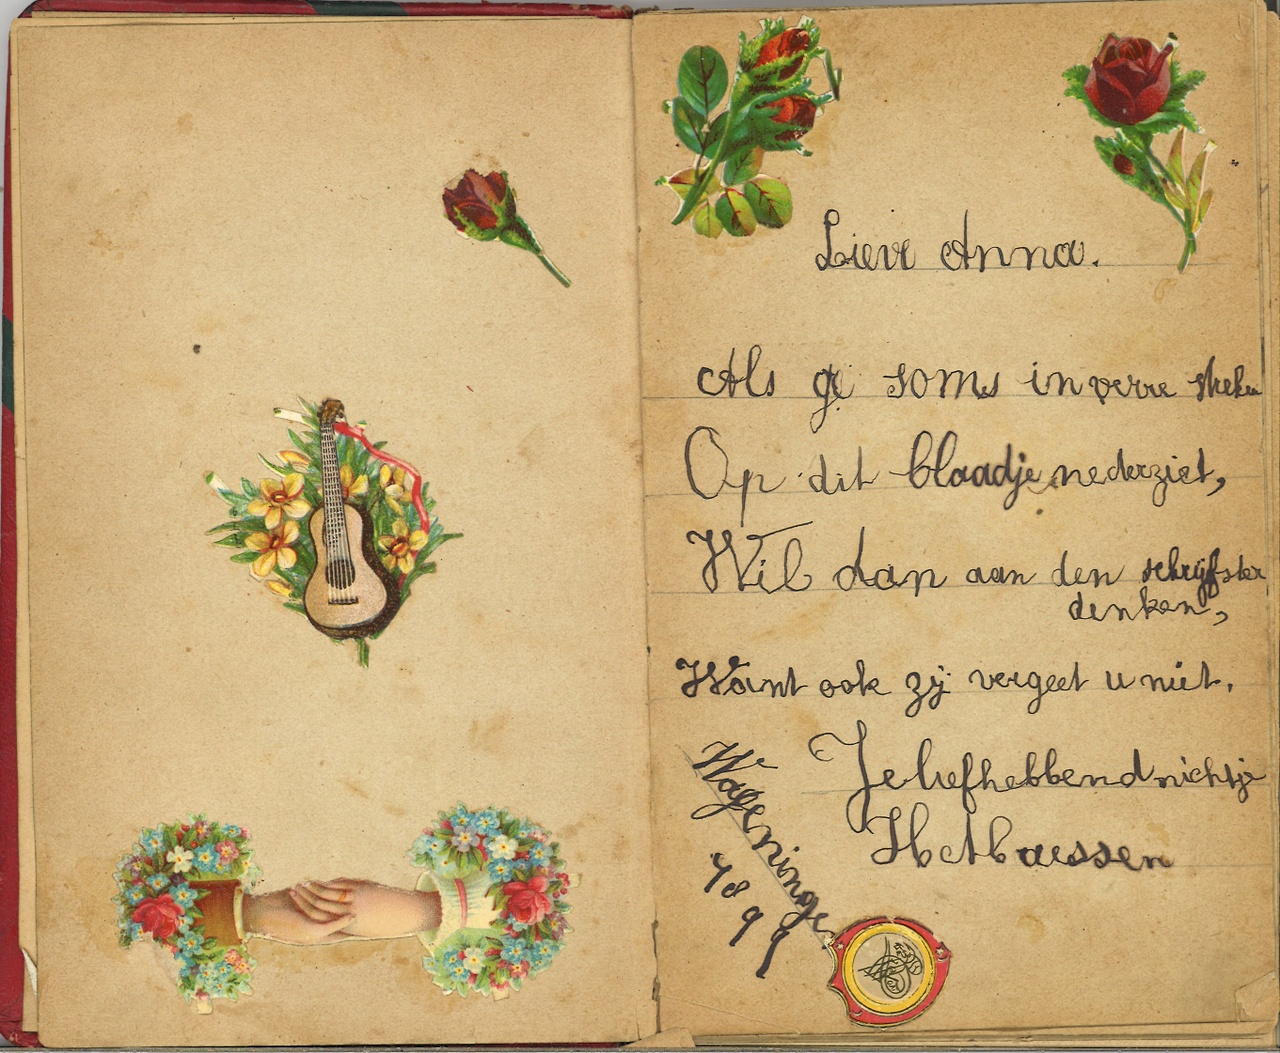 Lieve Anna.
Als ge soms in verre streken
Op dit blaadje nederziet,
Wil dan aan den schrijfster
denken,
Want ook zij vergeet u niet.
Je liefhebbend nichtje
Wageningen
1899